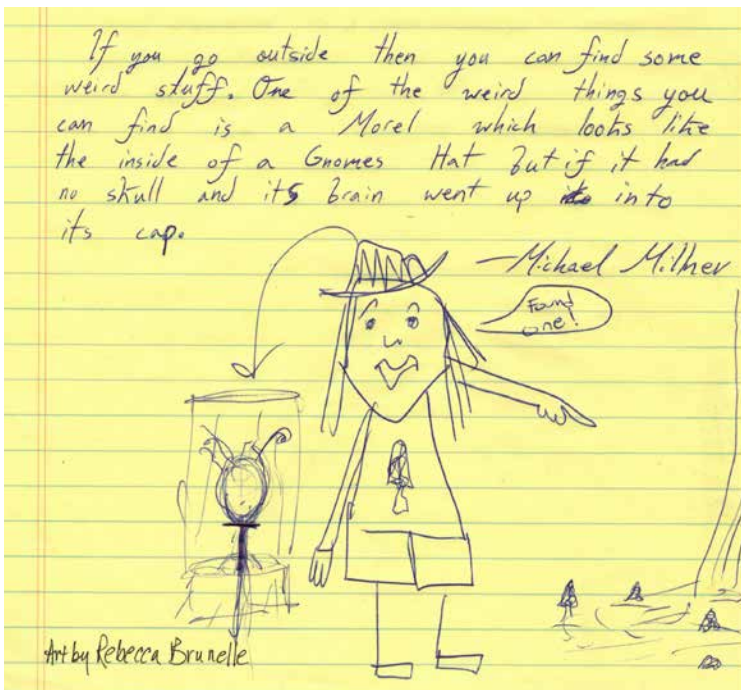 If you go outside then you can find some
weird stuff. One of the weird things you
can find is a Morel which looks like
the inside of a Gnomes Hat But if it had
no skull and its brain went up into
its cap.
—Michael Milner
Found
one!
Art by Rebecca Brunelle